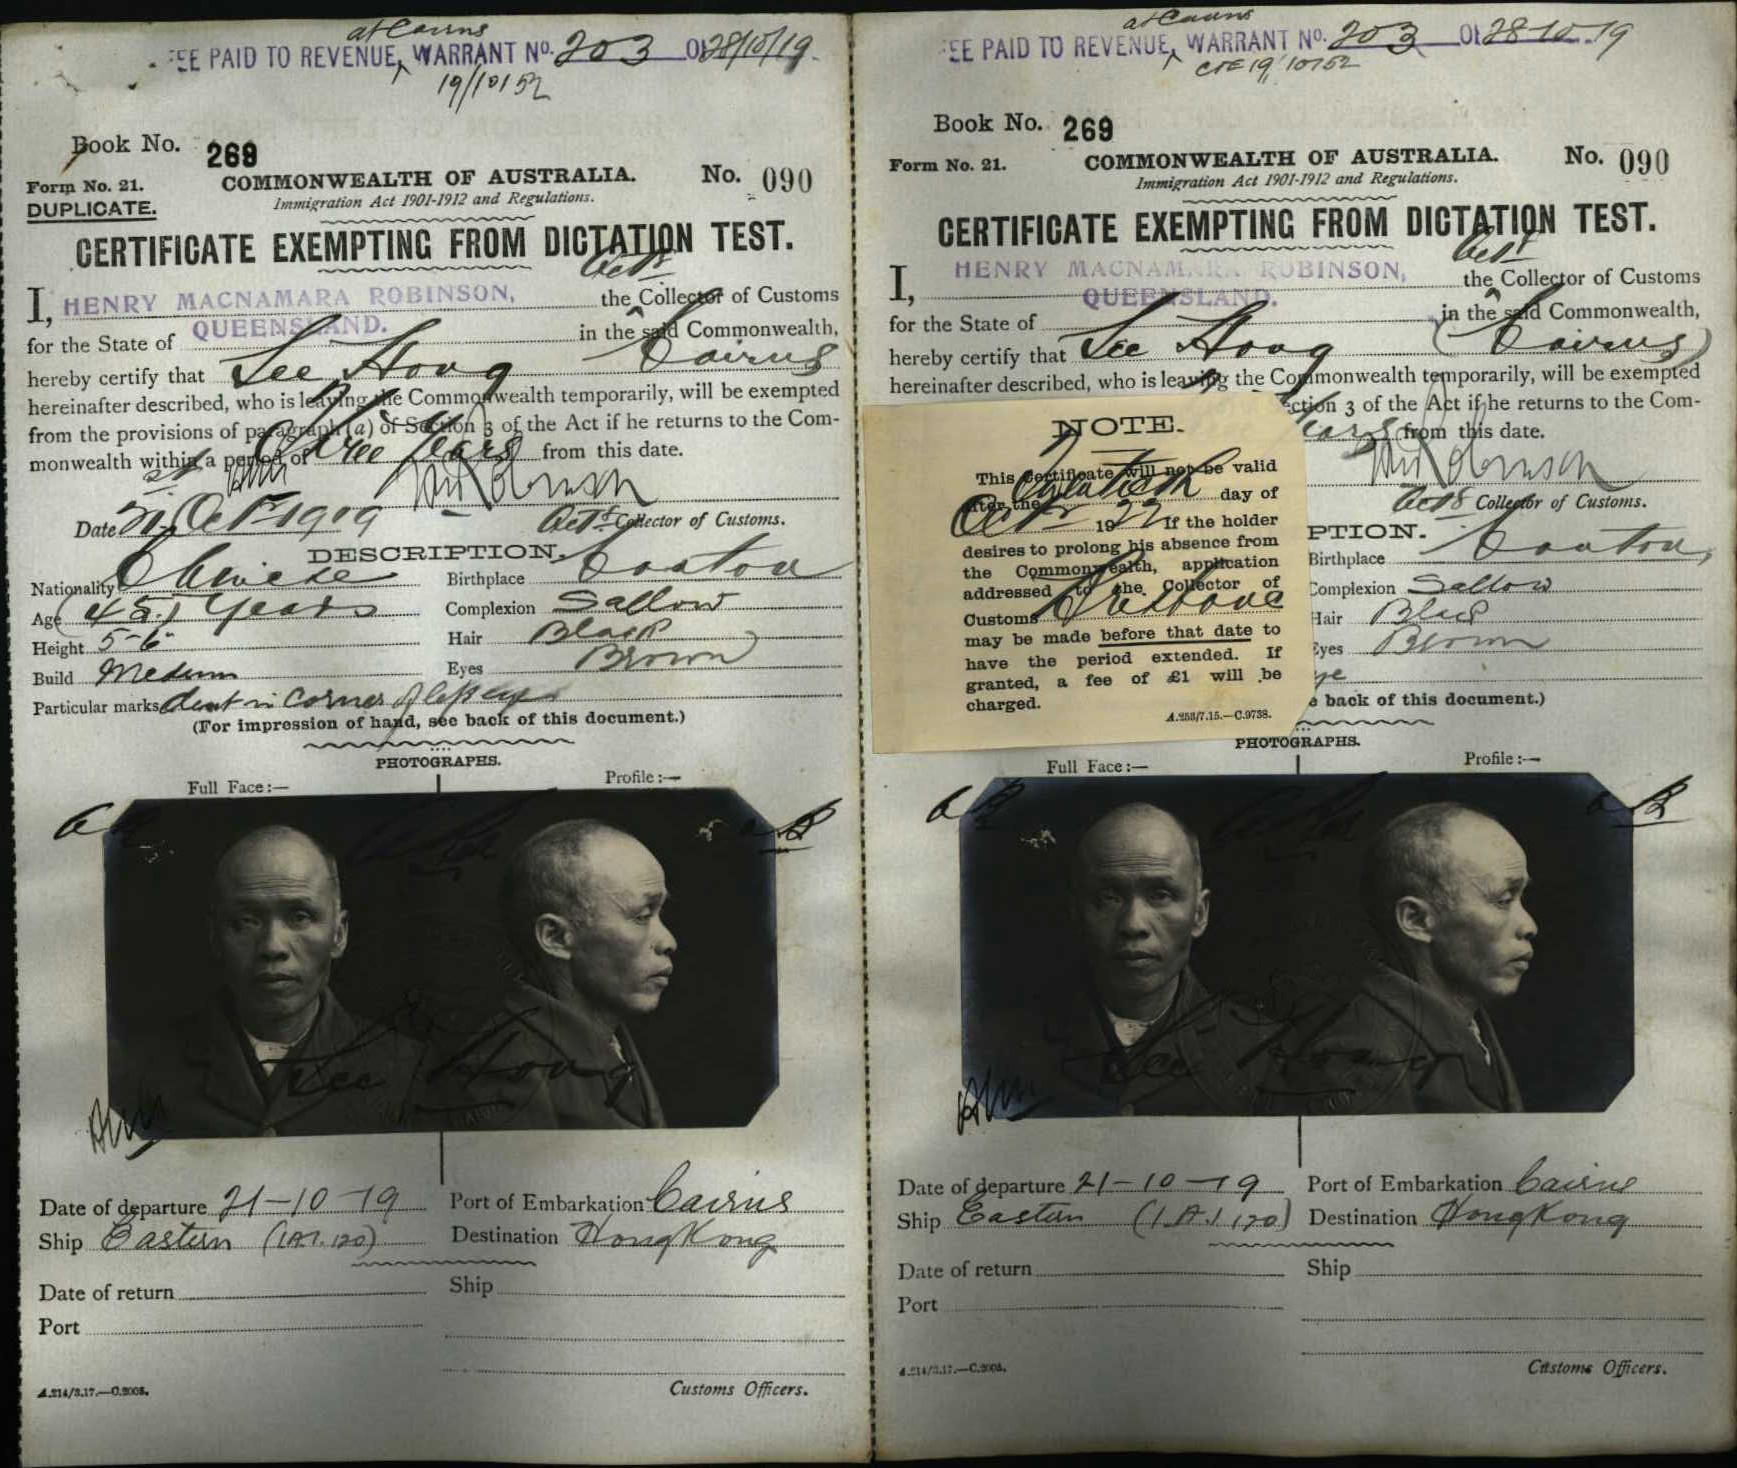 at Cairns
FEE PAID TO REVENUE, WARRANT No. 203 OF 28/10/19.
19/10152
Book No. 269
Form No. 21.
DUPLICATE.
COMMONWEALTH OF AUSTRALIA.
No. 090
Immigration Act 1901-1912 and Regulations.
CERTIFICATE EXEMPTING FROM DICTATION TEST.
I, HENRY MACNAMARA ROBINSON, Actg the Collector of Customs
for the State of QUEENSLAND. in the said Commonwealth,
hereby certify that See Hong Cairns
hereinafter described, who is leaving the Commonwealth temporarily, will be exempted
from the provisions of paragraph (a) of Section 3 of the Act if he returns to the Com-
monwealth within a period of Three Years from this date.
Date 21st Oct 1919
Actg Collector of Customs.
DESCRIPTION.
Nationality Chinese
Birthplace Canton
Age 45 Years
Complexion Sallow
Height 5-6
Hair Black
Build Medium
Eyes Brown
Particular marks dent in corner of left eye
(For impression of hand, see back of this document.)
PHOTOGRAPHS.
Full Face:—
Profile:—
See Hong
Date of departure 21-10-19
Port of Embarkation Cairns
Ship Eastern (I.A.1. 120)
Destination HongKong
Date of return
Ship
Port
A.214/3.17.—C.2008.
Customs Officers.
at Cairns
FEE PAID TO REVENUE, WARRANT No. 203 OF 28-10-19
CTE 19/10152
Book No. 269
Form No. 21.
COMMONWEALTH OF AUSTRALIA.
No. 090
Immigration Act 1901-1912 and Regulations.
CERTIFICATE EXEMPTING FROM DICTATION TEST.
I, HENRY MACNAMARA ROBINSON, Actg the Collector of Customs
for the State of QUEENSLAND. in the said Commonwealth,
hereby certify that See Hong (Cairns)
hereinafter described, who is leaving the Commonwealth temporarily, will be exempted
ction 3 of the Act if he returns to the Com-
Years from this date.
Actg Collector of Customs.
NOTE.
This Certificate will not be valid
after the Twentieth day of
Oct 1922 If the holder
desires to prolong his absence from
the Commonwealth, application
addressed to the Collector of
Customs Brisbane
may be made before that date to
have the period extended. If
granted, a fee of £1 will be
charged.
A.253/7.15.—C.9738.
PTION.
Birthplace Canton
Complexion Sallow
Hair Black
Eyes Brown
eye
e back of this document.)
PHOTOGRAPHS.
Full Face:—
Profile:—
See Hong
Date of departure 21-10-19
Port of Embarkation Cairns
Ship Eastern (I.A.1. 120)
Destination HongKong
Date of return
Ship
Port
A.214/3.17.—C.2008.
Customs Officers.